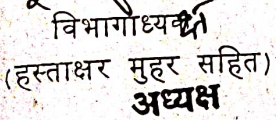 विभागाध्यक्ष
(हस्ताक्षर मुहर सहित)
अध्यक्ष